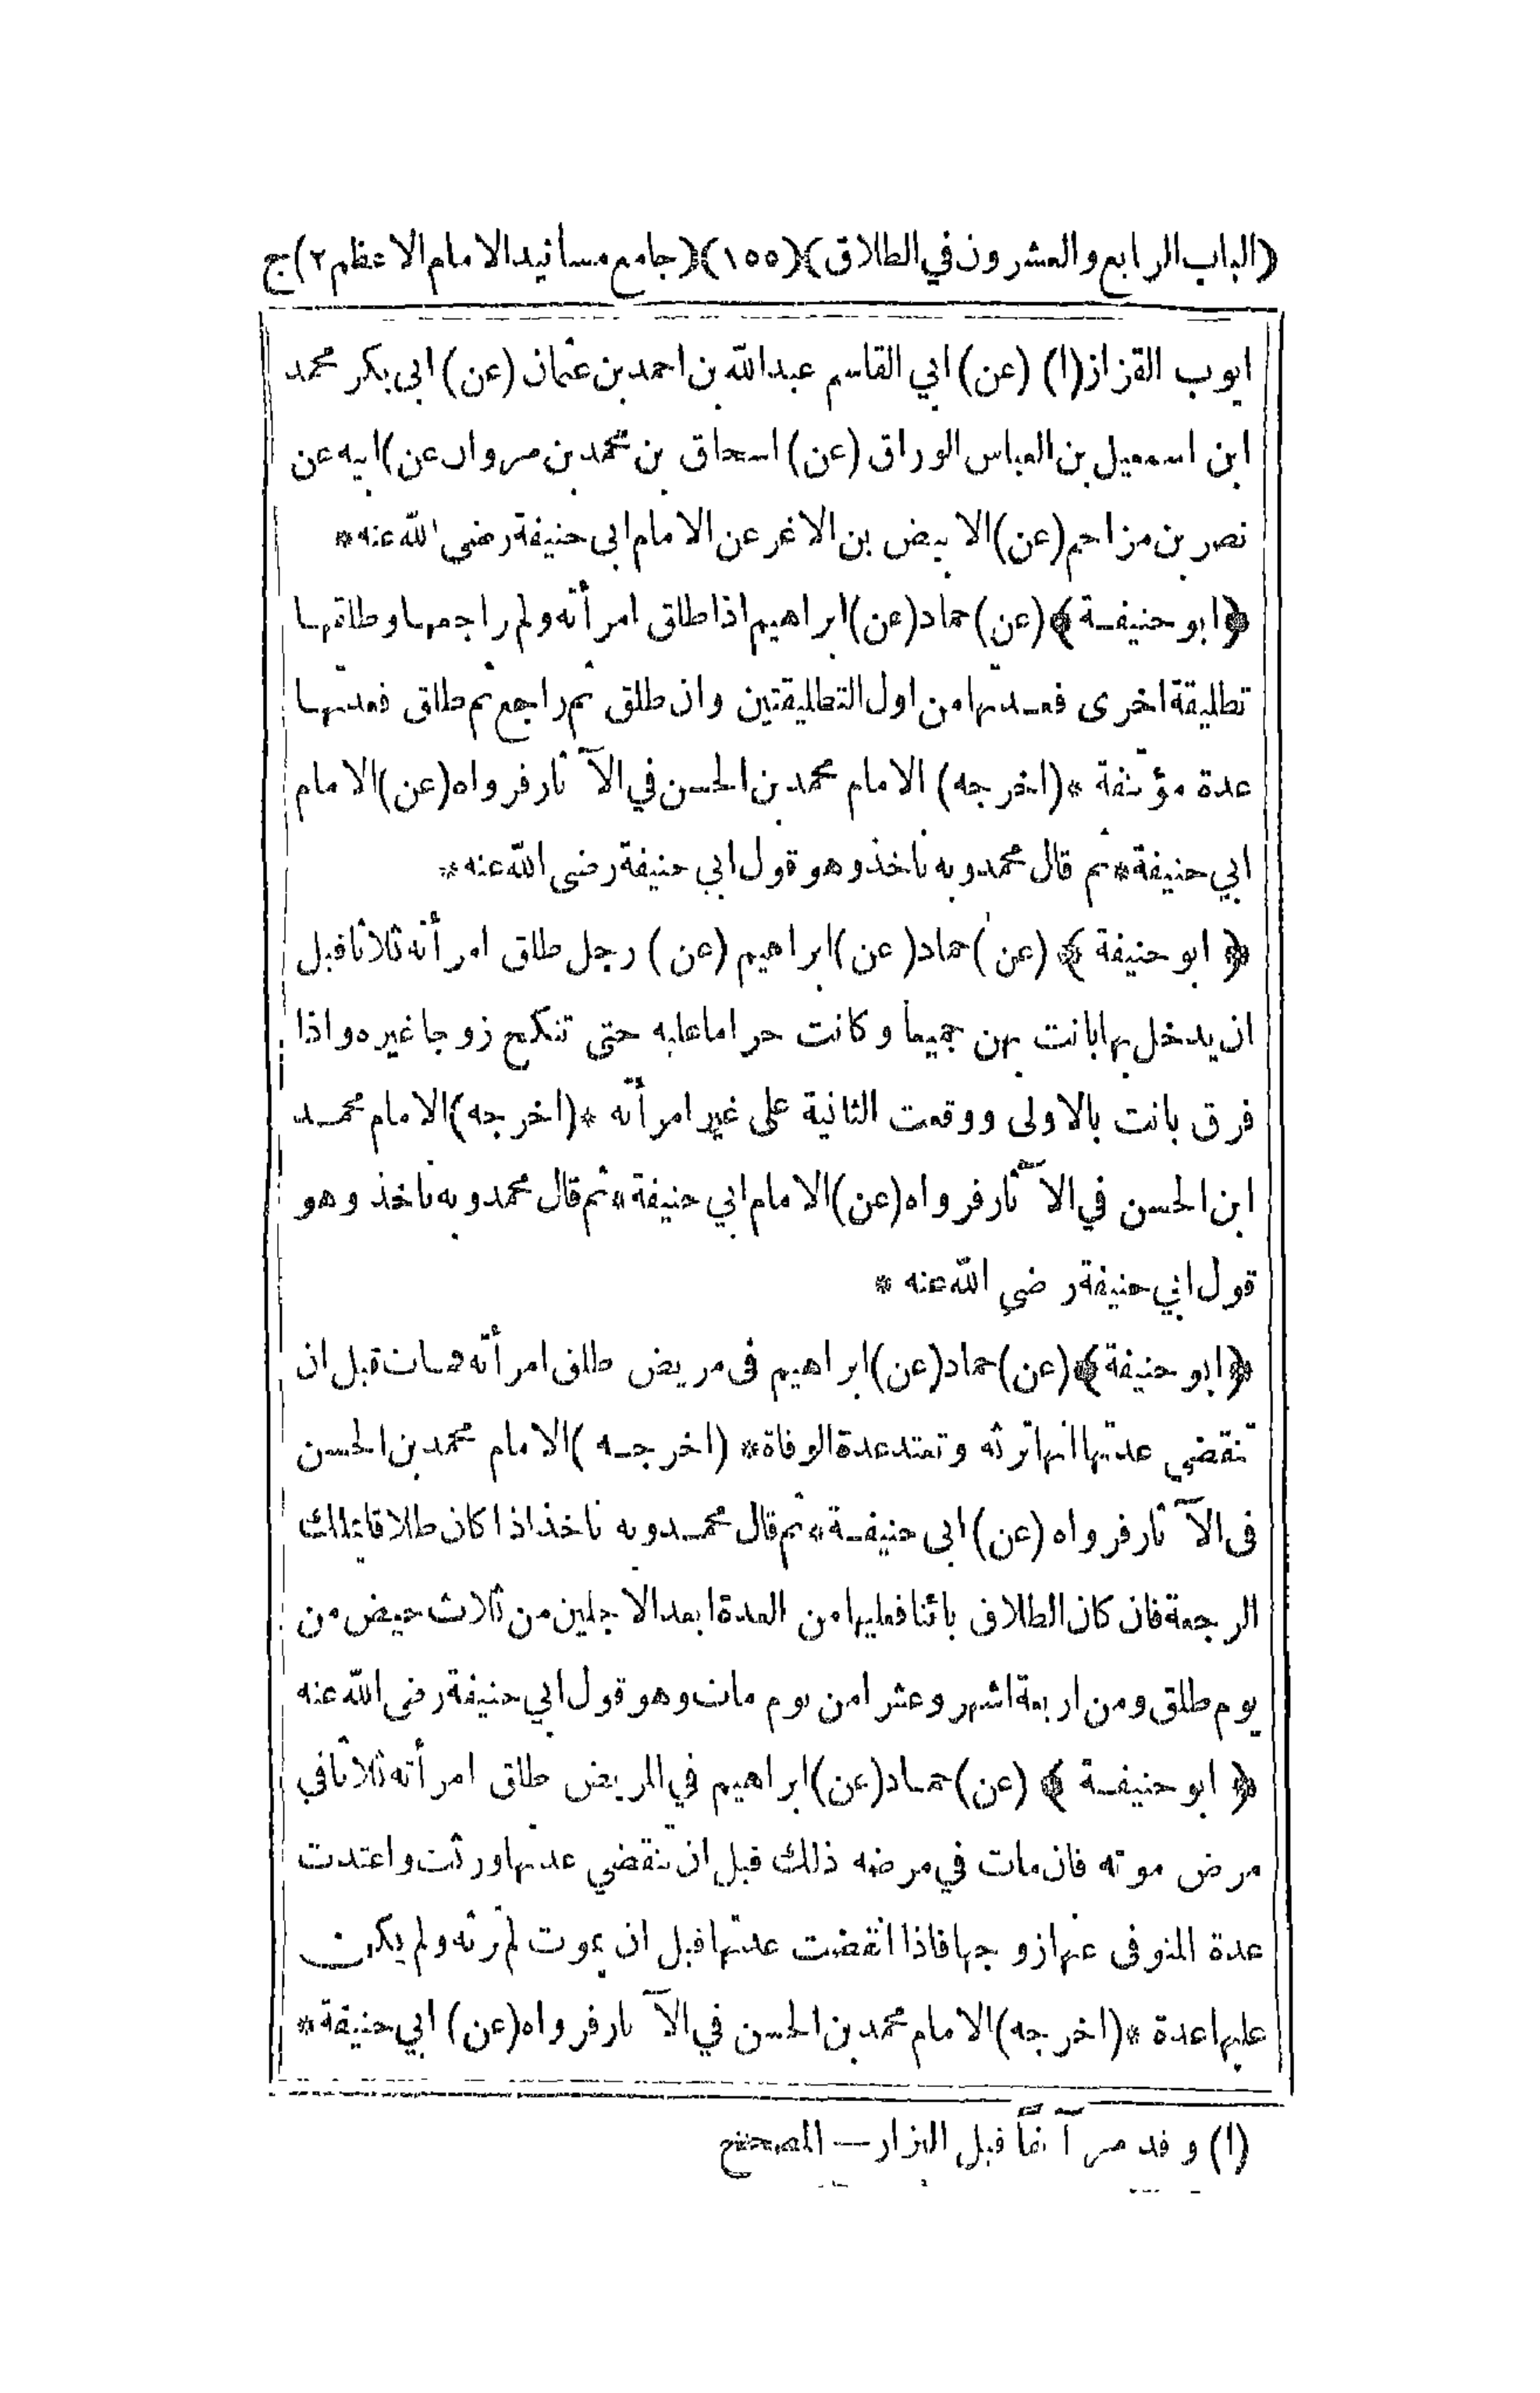 (الباب الرابع والعشرون في الطلاق)(١٥٥)(جامع مسانيد الامام الاعظم ٢)ج
ايوب القزاز(١) (عن) ابي القاسم عبدالله بن احمد بن عثمان (عن) ابى بكر محمد
ابن اسمعيل بن العباس الوراق (عن) اسحاق بن محمد بن مروان عن) ابيه عن
نصر بن مزاحم (عن) الابيض بن الاغر عن الامام ابى حنيفة رضى الله عنه *
﴿ابو حنيفة﴾ (عن) حماد (عن) ابراهيم اذا طلق امرأته ولم راجعها وطلقها
تطليقة اخرى فعدتها من اول التطليقتين وان طلق ثم راجع ثم طلق فعدتها
عدة مؤتنفة * (اخرجه) الامام محمد بن الحسن في الآثار فرواه (عن) الامام
ابي حنيفة * ثم قال محمد وبه ناخذ وهو قول ابي حنيفة رضى الله عنه *
﴿ابو حنيفة﴾ (عن) حماد (عن) ابراهيم (عن) رجل طلق امرأته ثلاثا قبل
ان يدخل بها بانت بهن جميعا وكانت حراما عليه حتى تنكح زوجا غيره واذا
فرق بانت بالاولى ووقعت الثانية على غير امرأته * (اخرجه) الامام محمد
ابن الحسن في الآثار فرواه (عن) الامام ابي حنيفة * ثم قال محمد وبه ناخذ وهو
قول ابي حنيفة رضي الله عنه *
﴿ابو حنيفة﴾ (عن) حماد (عن) ابراهيم فى مريض طلق امرأته فمات قبل ان
تنقضي عدتها انها ترثه وتعتد عدة الوفاة * (اخرجه) الامام محمد بن الحسن
فى الآثار فرواه (عن) ابى حنيفة * ثم قال محمد وبه ناخذ اذا كان طلاقا يملك
الرجعة فان كان الطلاق بائنا فعليها من العدة ابعد الاجلين من ثلاث حيض من
يوم طلق ومن اربعة اشهر وعشرا من يوم مات وهو قول ابي حنيفة رضى الله عنه
﴿ابو حنيفة﴾ (عن) حماد (عن) ابراهيم في المريض طلق امرأته ثلاثا في
مرض موته فان مات في مرضه ذلك قبل ان تنقضي عدتها ورثت واعتدت
عدة المتوفى عنها زوجها فاذا انقضت عدتها قبل ان يموت لم ترثه ولم يكن
عليها عدة * (اخرجه) الامام محمد بن الحسن في الآثار فرواه (عن) ابي حنيفة *
(١) وقد مر آنفاً قبل البزار — المصحح